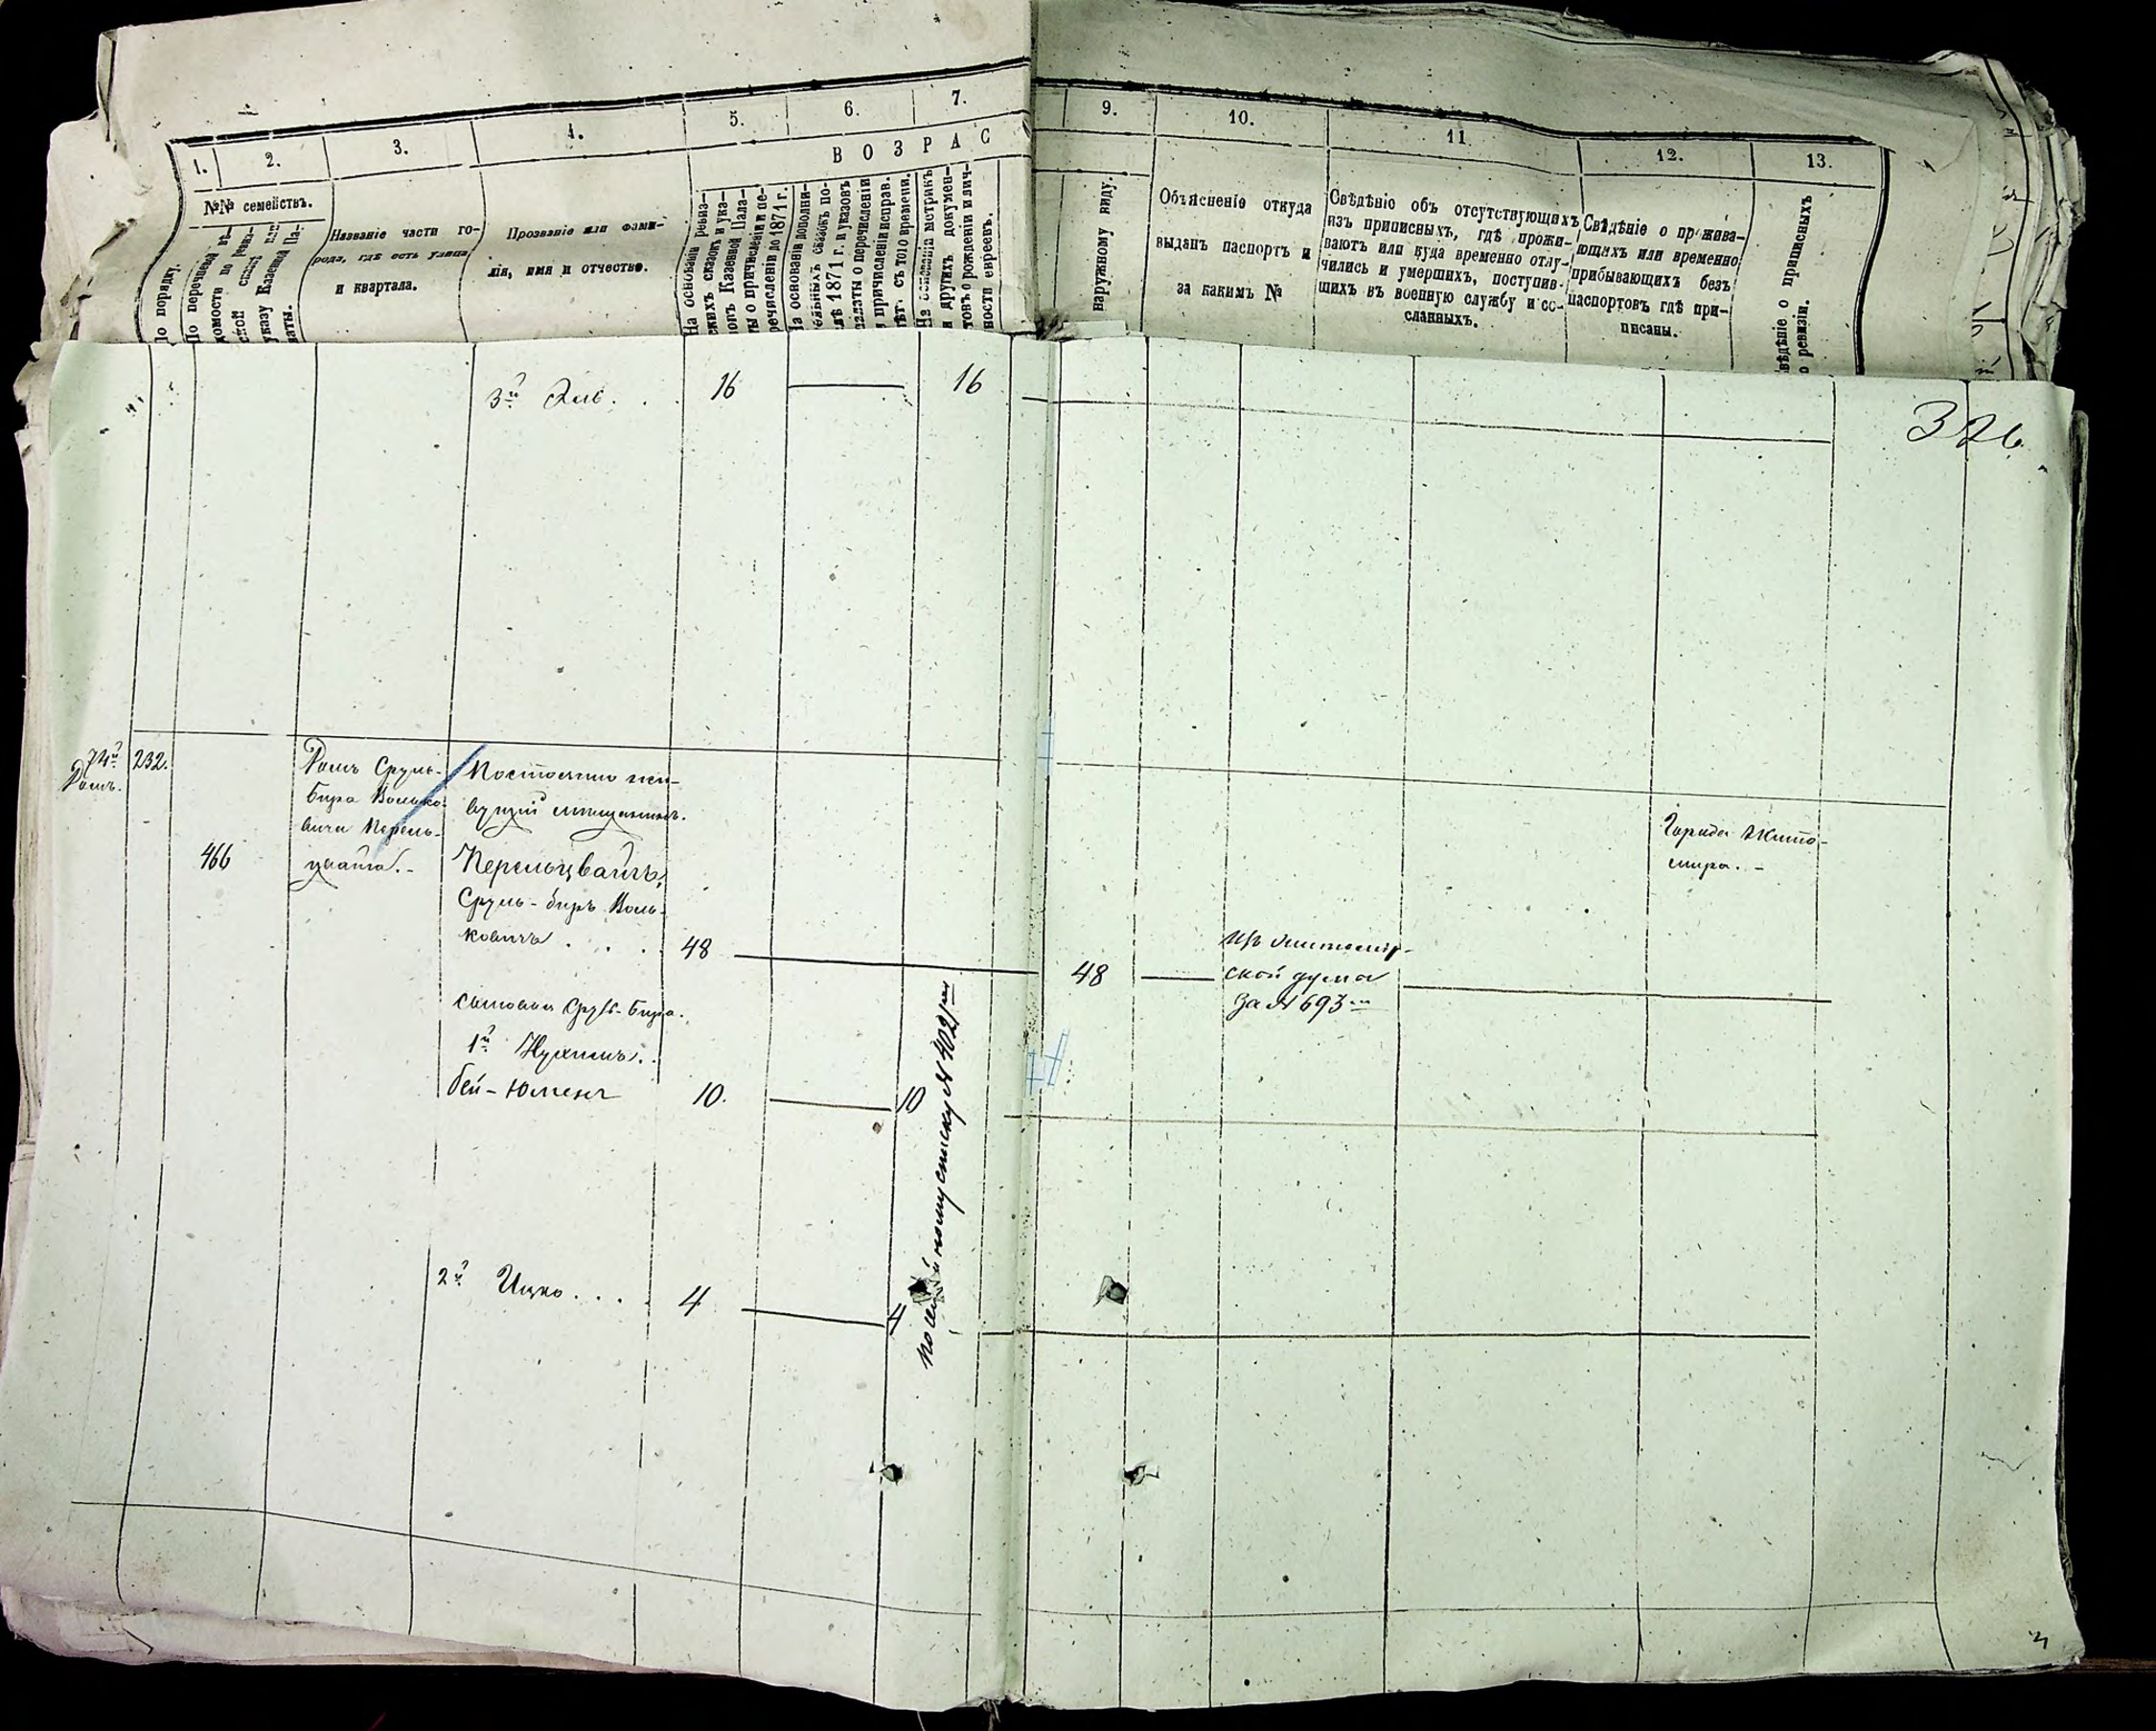 1. 2. 3. 4. 5. 6. 7. 9. 10. 11 12. 13.
ВОЗРАС
№№ семействъ.
По порядку.
По перечневой вѣ-
домости по ревиз-
ской сказкѣ или
указу Казенной Па-
латы.
Названіе части го-
рода, гдѣ есть улица
и квартала.
Прозваніе или фами-
лія, имя и отчество.
На основаніи ревиз-
скихъ сказокъ и ука-
зовъ Казенной Пала-
ты о причисленіи и пе-
речисленіи до 1871 г.
На основаніи дополни-
тельныхъ сказокъ по-
слѣ 1871 г. и указовъ
палаты о перечисленіи
и причисленіи исправ.
лѣт. съ того времени.
На основаніи метрикъ
и другихъ докумен-
товъ о рожденіи и лич-
ности евреевъ.
наружному виду.
Объясненіе откуда
выданъ паспортъ и
за какимъ №
Свѣдѣніе объ отсутствующихъ
изъ приписныхъ, гдѣ прожи-
ваютъ или куда временно отлу-
чились и умершихъ, поступив-
шихъ въ военную службу и сос-
сланныхъ.
Свѣдѣніе о прожива-
ющихъ или временно
прибывающихъ безъ
паспортовъ гдѣ при-
писаны.
Свѣдѣніе о приписныхъ
по ревизіи.
326.
3й 16 16
74й
Домъ.
232.
466
Домъ Сруль-
Бира Волько-
вича Перель-
цвайга.-
Постоянно жи-
вущій мѣщанинъ.
Перельцвайгъ,
Сруль-биръ Воль-
ковичъ . . . 48
48
Изъ житомир-
ской думы
за № 693м
Города Жито-
мира. -
сыновья Сруль-Бира.
1й Нухимъ. .
бен-Юмень 10. 10
2й Ицко . . . . 4 4
по семейному списку № 402